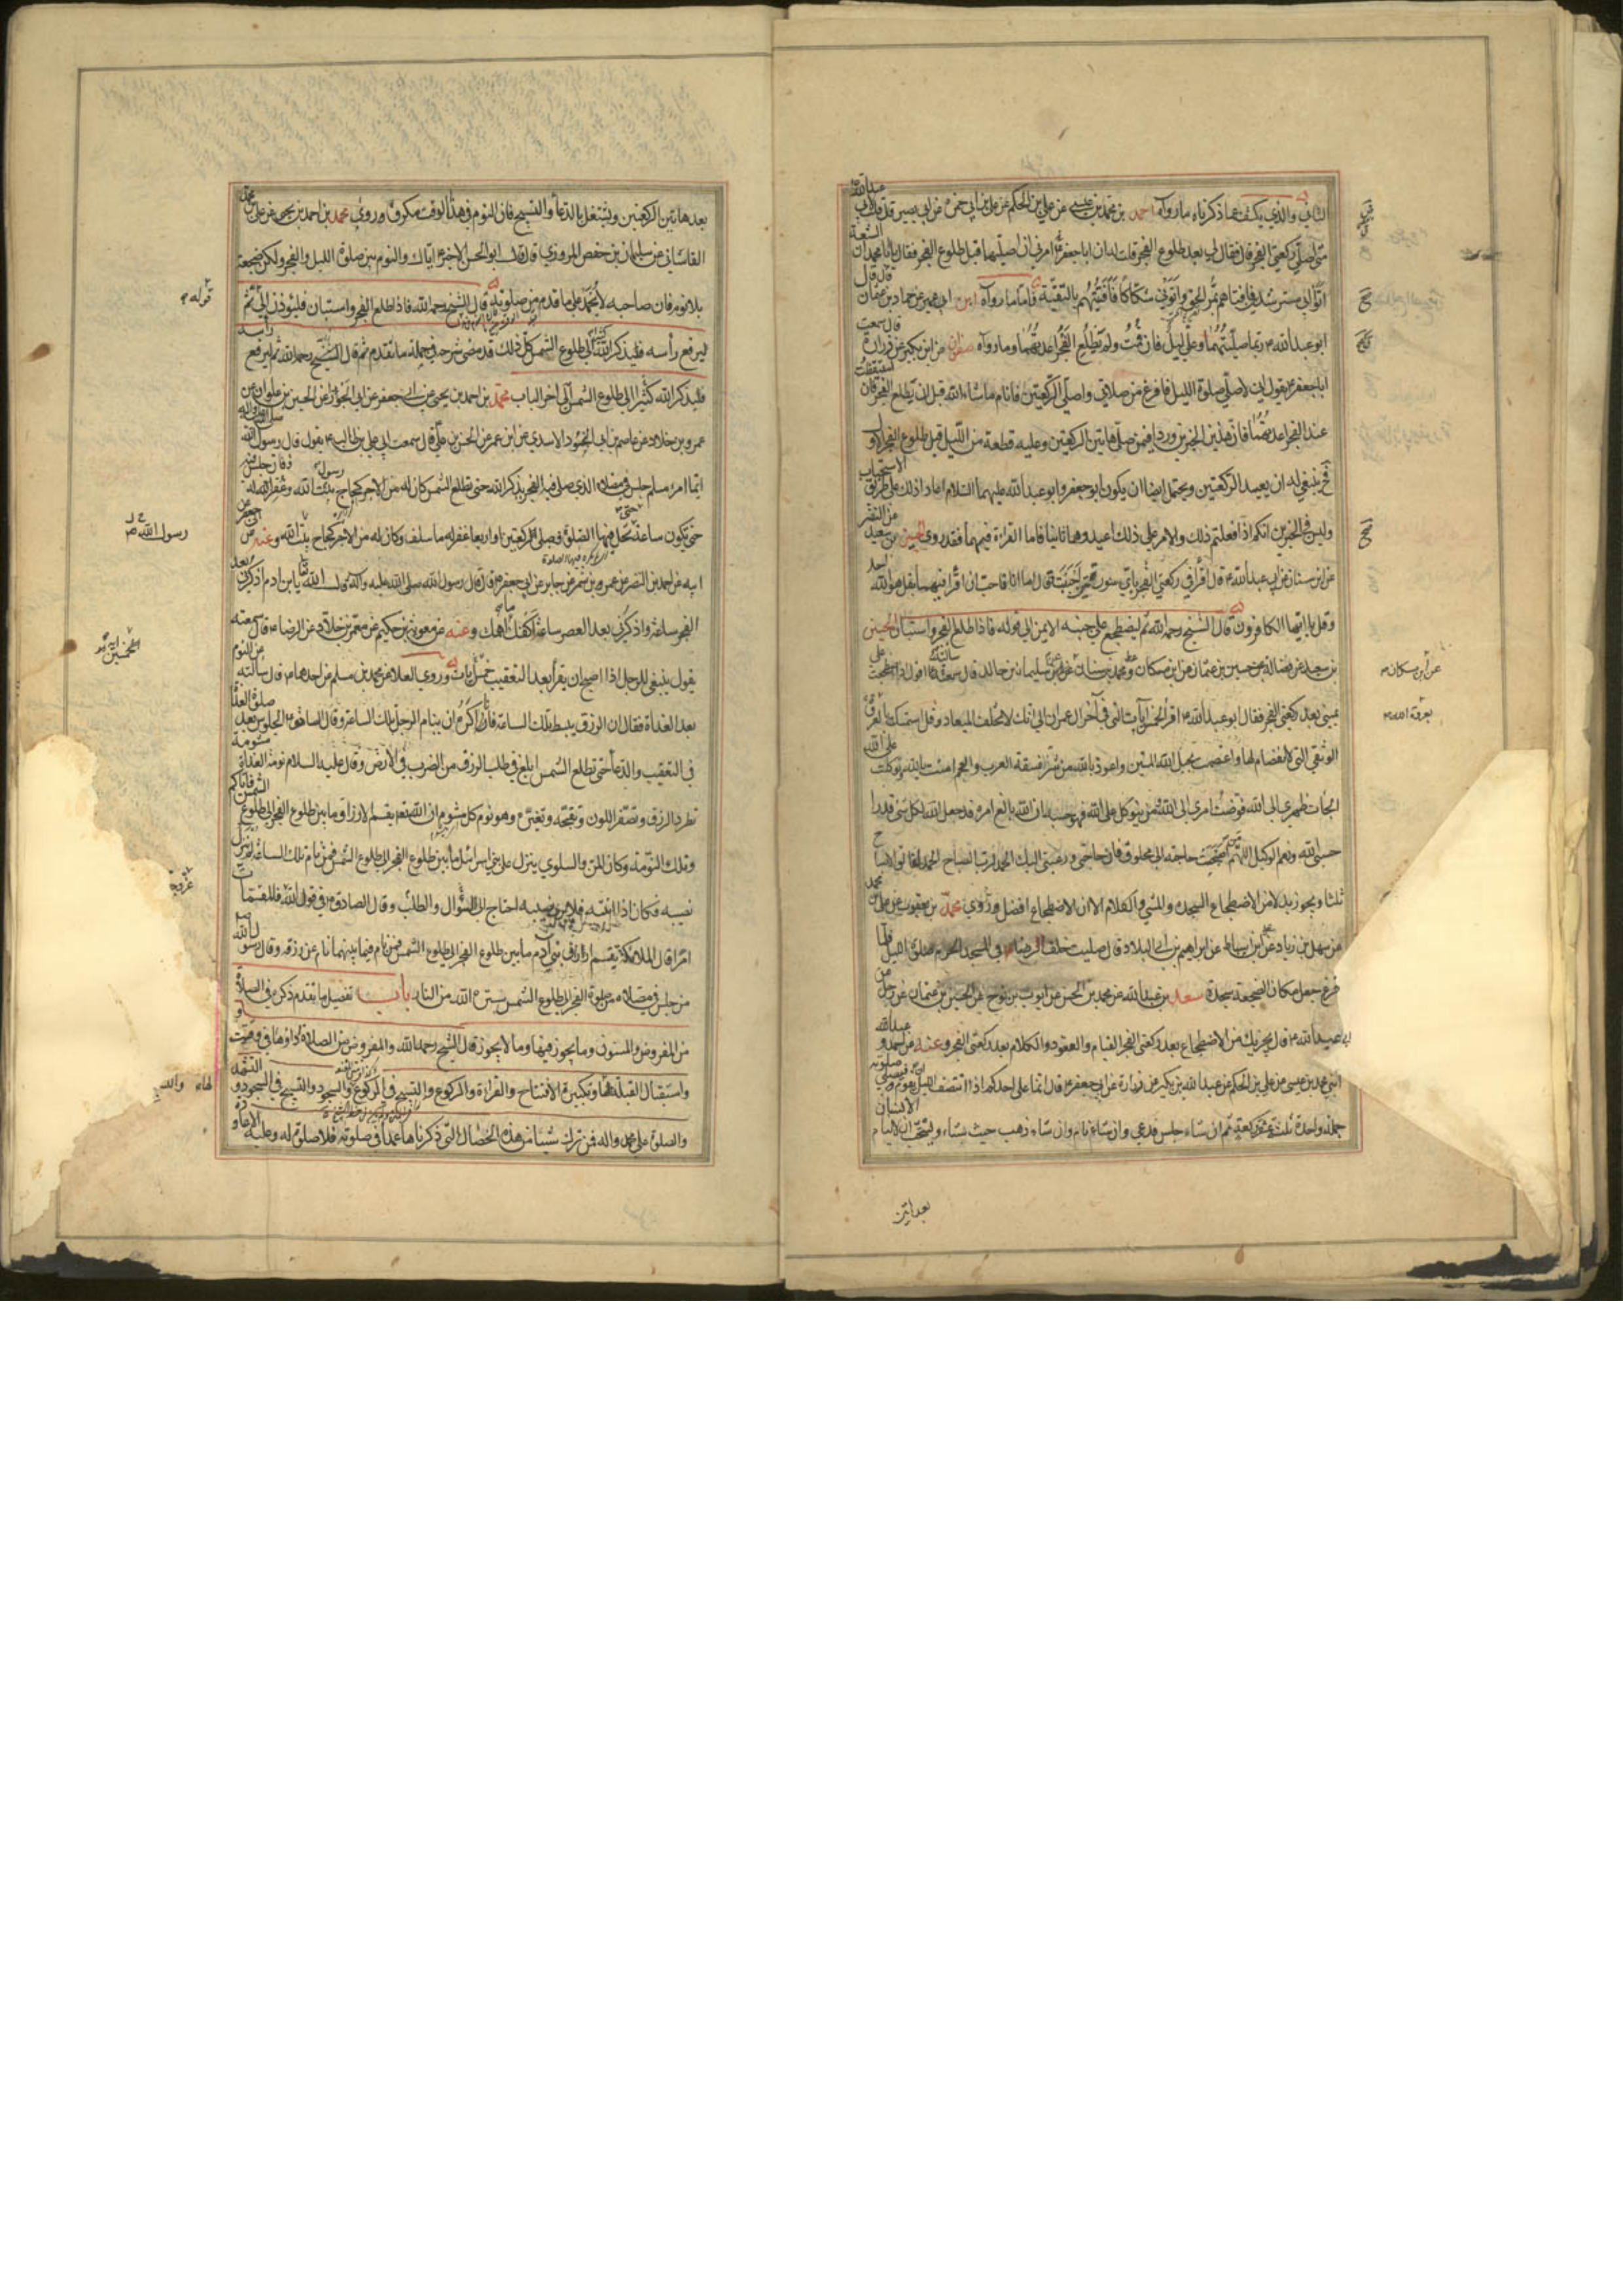 الثاني والذي يكشف عما ذكرناه ما رواه احمد بن محمد بن عيسى عن علي بن الحكم عن علي بن ابي حمزة عن ابي بصير قال قلت لابي عبدالله
متى اصلي ركعتي الفجر قال فقال لي بعد طلوع الفجر قلت له ان ابا جعفر امرني ان اصليهما قبل طلوع الفجر فقال يا با محمد ان الشيعة
اتوا ابي مسترشدين فافتاهم بمر الحق واتوني شكاكا فافتيتهم بالتقية فاما ما رواه ابن ابي عمير عن حماد بن عثمان قال قال
ابو عبدالله ربما صليتهما وعلي ليل فان قمت ولم يطلع الفجر اعدتهما وما رواه صفوان عن ابن بكير عن زرارة قال سمعت
ابا جعفر يقول اني لاصلي صلوة الليل فافرغ من صلاتي واصلي الركعتين فانام ما شاء الله قبل ان يطلع الفجر فان استيقظت
عند الفجر اعدتهما فان هذين الخبرين وردا فيمن صلى هاتين الركعتين وعليه قطعة من الليل قبل طلوع الفجر الاول
فح ينبغي له ان يعيد الركعتين ويحتمل ايضا ان يكون ابو جعفر وابو عبدالله عليهما السلام اعادا ذلك على طريق الاستحباب
وليس في الخبرين انكم اذا فعلتم ذلك والامر على ذلك اعيدوهما ثانيا فاما القراءة فيهما فقد روى الحسين بن سعيد عن النضر
عن ابن سنان عن ابي عبدالله قال اقرأ في ركعتي الفجر باي سورتين احببت قال اما انا فاحب ان اقرأ فيهما بقل هو الله احد
وقل يا ايها الكافرون قال الشيخ رحمه الله ثم ليضطجع على جنبه الايمن الى قوله فاذا طلع الفجر واستبان الحسين
بن سعيد عن فضالة عن حسين بن عثمان عن ابن مسكان ومحمد بن سنان عن ابن مسكان عن سليمان بن خالد قال سألته عما اقول اذا اضطجعت على
يميني بعد ركعتي الفجر فقال ابو عبدالله اقرأ الخمس آيات التي في آخر ال عمران الى انك لا تخلف الميعاد وقل استمسكت بالعروة
الوثقى التي لا انفصام لها واعتصمت بحبل الله المتين واعوذ بالله من شر فسقة العرب والعجم امنت بالله توكلت على الله
الجأت ظهري الى الله فوضت امري الى الله من يتوكل على الله فهو حسبه ان الله بالغ امره قد جعل الله لكل شيء قدرا
حسبي الله ونعم الوكيل اللهم من اصبحت حاجته الى مخلوق فان حاجتي ورغبتي اليك الحمد لرب الصباح الحمد لفالق الاصباح
ثلثا ويجوز بدلا من الاضطجاع السجدة والمشي والكلام الا ان الاضطجاع افضل وروى محمد بن يعقوب عن علي بن محمد
عن سهل بن زياد عن علي بن اسباط عن ابراهيم بن ابي البلاد قال صليت خلف الرضا في المسجد الحرام صلوة الليل فلما
فرغ جعل مكان الضجعة سجدة سعد بن عبدالله عن محمد بن الحسن عن ايوب بن نوح عن الحسين بن عثمان عن رجل عن
ابي عبدالله قال يجزيك من الاضطجاع بعد ركعتي الفجر القيام والقعود والكلام بعد ركعتي الفجر وعنه عن احمد وعبدالله
ابني محمد بن عيسى عن علي بن الحكم عن عبدالله بن بكير عن زرارة عن ابي جعفر قال انما على احدكم اذا انتصف الليل ان يقوم فيصلي صلوته
جملة واحدة ثلث عشرة ركعة ثم ان شاء جلس فدعى وان شاء نام وان شاء ذهب حيث شاء ويستحب ان لا ينام الانسان
عن ابن مسكان
بعروة الله
بعد هاتين
بعد هاتين الركعتين ويشتغل بالدعاء والتسبيح فان النوم في هذا الوقت مكروه وروى محمد بن احمد بن يحيى عن علي بن محمد
القاساني عن سليمان بن حفص المروزي قال قال ابو الحسن الاخير اياك والنوم بين صلوة الليل والفجر ولكن ضجعة
بلا نوم فان صاحبه لا يحمد على ما قدم من صلوته قال الشيخ رحمه الله فاذا طلع الفجر واستبان فليؤذن الى ثم
ليرفع رأسه فليذكر الله كثيرا الى طلوع الشمس كل ذلك قد مضى شرحه في جملة ما تقدم ثم قال الشيخ رحمه الله ثم ليرفع رأسه
فليذكر الله كثيرا الى طلوع الشمس الى اخر الباب محمد بن احمد بن يحيى عن ابي جعفر عن ابي الجوزاء عن الحسين بن علوان عن
عمرو بن خالد عن عاصم بن ابي النجود الاسدي عن ابن عمر عن الحسن بن علي قال سمعت ابي علي بن ابي طالب يقول قال رسول الله صلى الله عليه واله
ايما امرء مسلم جلس في مصلاه الذي صلى فيه الفجر يذكر الله حتى تطلع الشمس كان له من الاجر كحاج بيت الله وغفر الله له فان جلس فيه
حتى تكون ساعة تحل فيها الصلوة فصلى ركعتين او اربعا غفر له ما سلف وكان له من الاجر كحاج بيت الله وعنه عن ابي جعفر عن
ابيه عن احمد بن النضر عن عمرو بن شمر عن جابر عن ابي جعفر قال قال رسول الله صلى الله عليه وآله قال الله تعالى يا ابن ادم اذكرني بعد
الفجر ساعة واذكرني بعد العصر ساعة اكفك ما اهمك وعنه عن معوية بن حكيم عن معمر بن خلاد عن الرضا قال سمعته
يقول ينبغي للرجل اذا اصبح ان يقرأ بعد التعقيب خمسين آيات وروى العلا عن محمد بن مسلم عن احدهما قال سألته عن النوم
بعد الغداة فقال ان الرزق يبسط تلك الساعة فانا اكره ان ينام الرجل تلك الساعة وقال الصادق الجلوس بعد صلوة الغداة
في التعقيب والدعاء حتى تطلع الشمس ابلغ في طلب الرزق من الضرب في الارض وقال عليه السلام نومة الغداة مشومة
تطرد الرزق وتصفر اللون وتقبحه وتغيره وهو نوم كل مشوم ان الله تعالى يقسم الارزاق ما بين طلوع الفجر الى طلوع الشمس فاياكم
وتلك النومة وكان المن والسلوى ينزل على بني اسرائيل ما بين طلوع الفجر الى طلوع الشمس فمن نام تلك الساعة لم ينزل
نصيبه فكان اذا انتبه فلا يرى نصيبه احتاج الى السؤال والطلب وقال الصادق في قول الله فالمقسمات
امرا قال الملائكة تقسم ارزاق بني آدم ما بين طلوع الفجر الى طلوع الشمس فمن نام فيما بينهما نام عن رزقه وقال رسول الله
من جلس في مصلاه من صلوة الفجر الى طلوع الشمس ستره الله من النار باب تفصيل ما تقدم ذكره في الصلاة
من المفروض والمسنون وما يجوز فيها وما لا يجوز قال الشيخ رحمه الله والمفروض من الصلاة اداؤها في وقتها
واستقبال القبلة لها وتكبيرة الافتتاح والقراءة والركوع والتسبيح في الركوع والسجود والتسبيح في السجود والتشهد
والصلوة على محمد واله فمن ترك شيئا من هذه الخصال التي ذكرناها عمدا في صلوته فلا صلوة له وعليه الاعادة
قوله
رسول الله